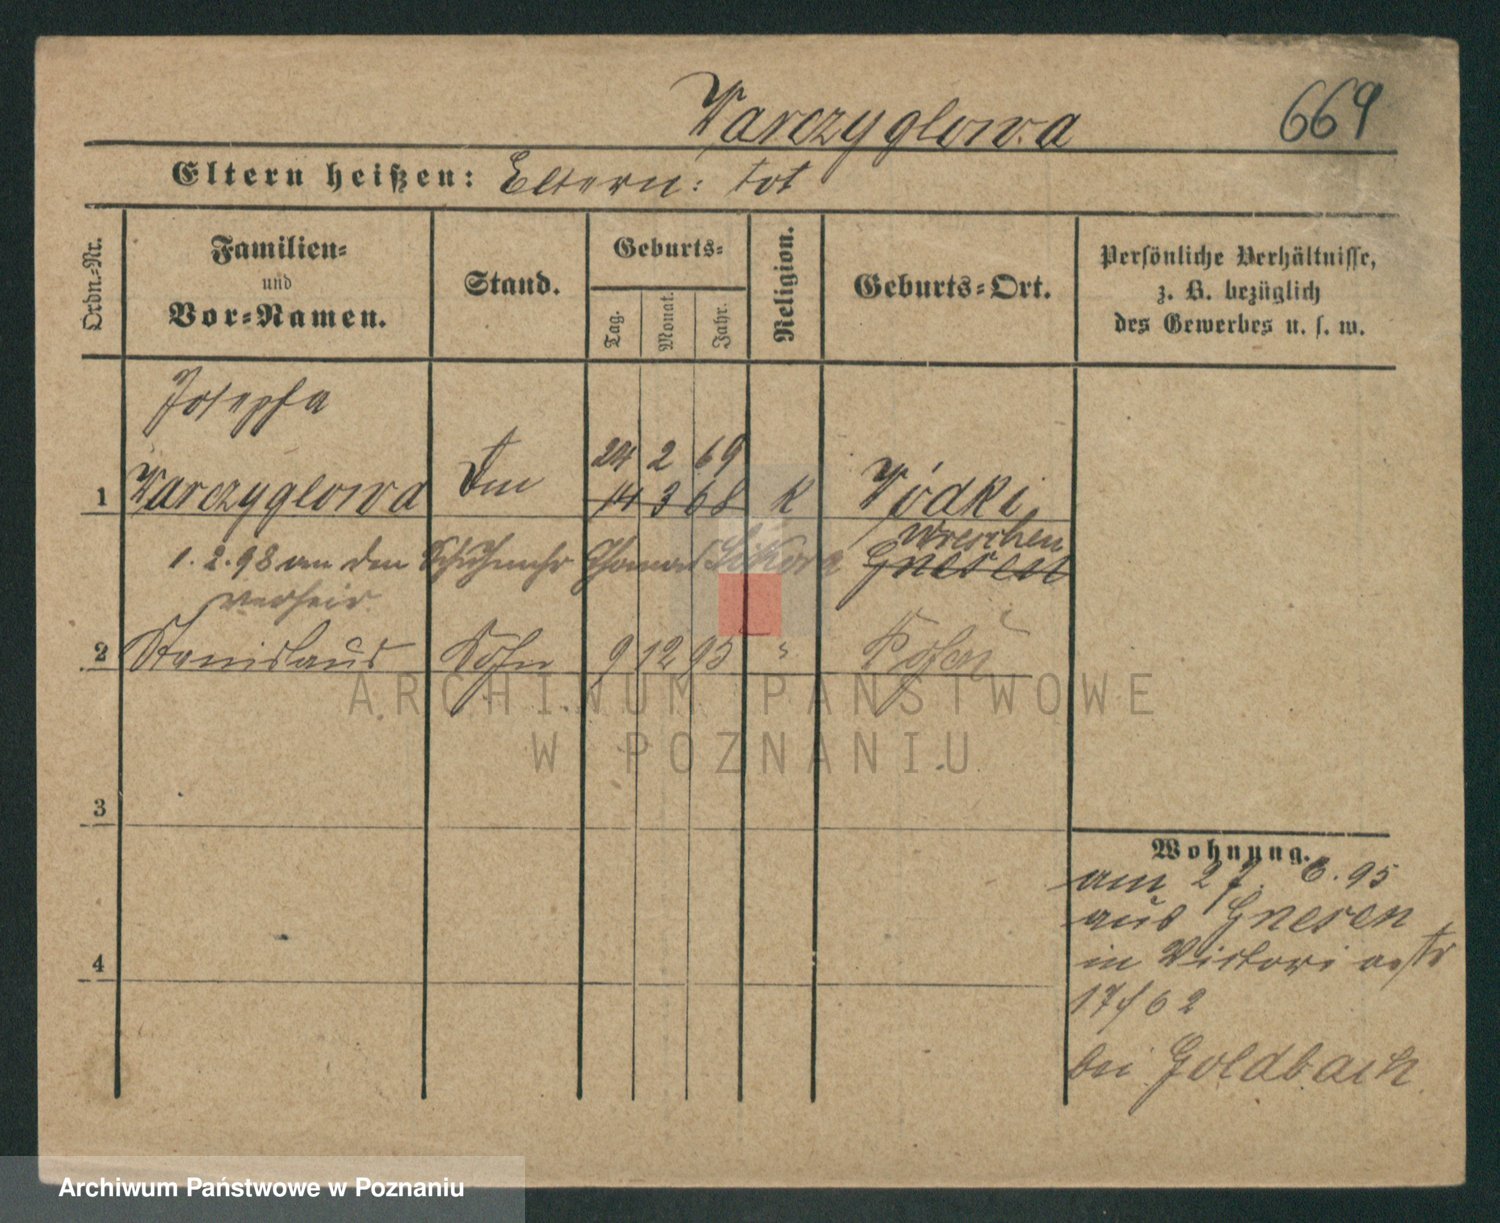 Warczyglowa
669
Eltern heißen: Eltern: tot
Ordn.-Nr.
Familien-
und
Vor-Namen.
Stand.
Geburts-
Tag.
Monat.
Jahr.
Religion.
Geburts-Ort.
Persönliche Verhältnisse,
z. B. bezüglich
des Gewerbes u. s. w.
Josepha
24 2 69
1 Warczyglowa 14 3 68 K Wódki
Wreschen
1. 2. 98 an den Schuhmchr Thomas Sikora Gnesen
verheir
2 Stanislaus Sohn 9 12 95 " Posen
ARCHIWUM PAŃSTWOWE
W POZNANIU
3
4
Wohnung.
am 27. 6. 95
aus Gnesen
in Victoriastr
17/62
bei Goldbach
Archiwum Państwowe w Poznaniu